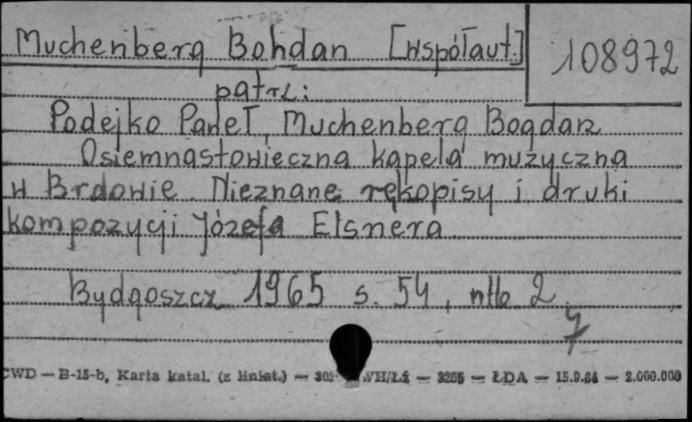 Muchenberg Bohdan [współaut.]
108972
patrz:
Podejko Paweł, Muchenberg Bogdan
Osiemnastowieczna kapela muzyczna
w Brdowie. Nieznane rękopisy i druki
kompozycji Józefa Elsnera
Bydgoszcz 1965 s. 54, nlb 2
CWD — B-15-b, Karta katal. (z liniat.) — WH/Łź — ŁDA — 15.9.64 — 2.000.000